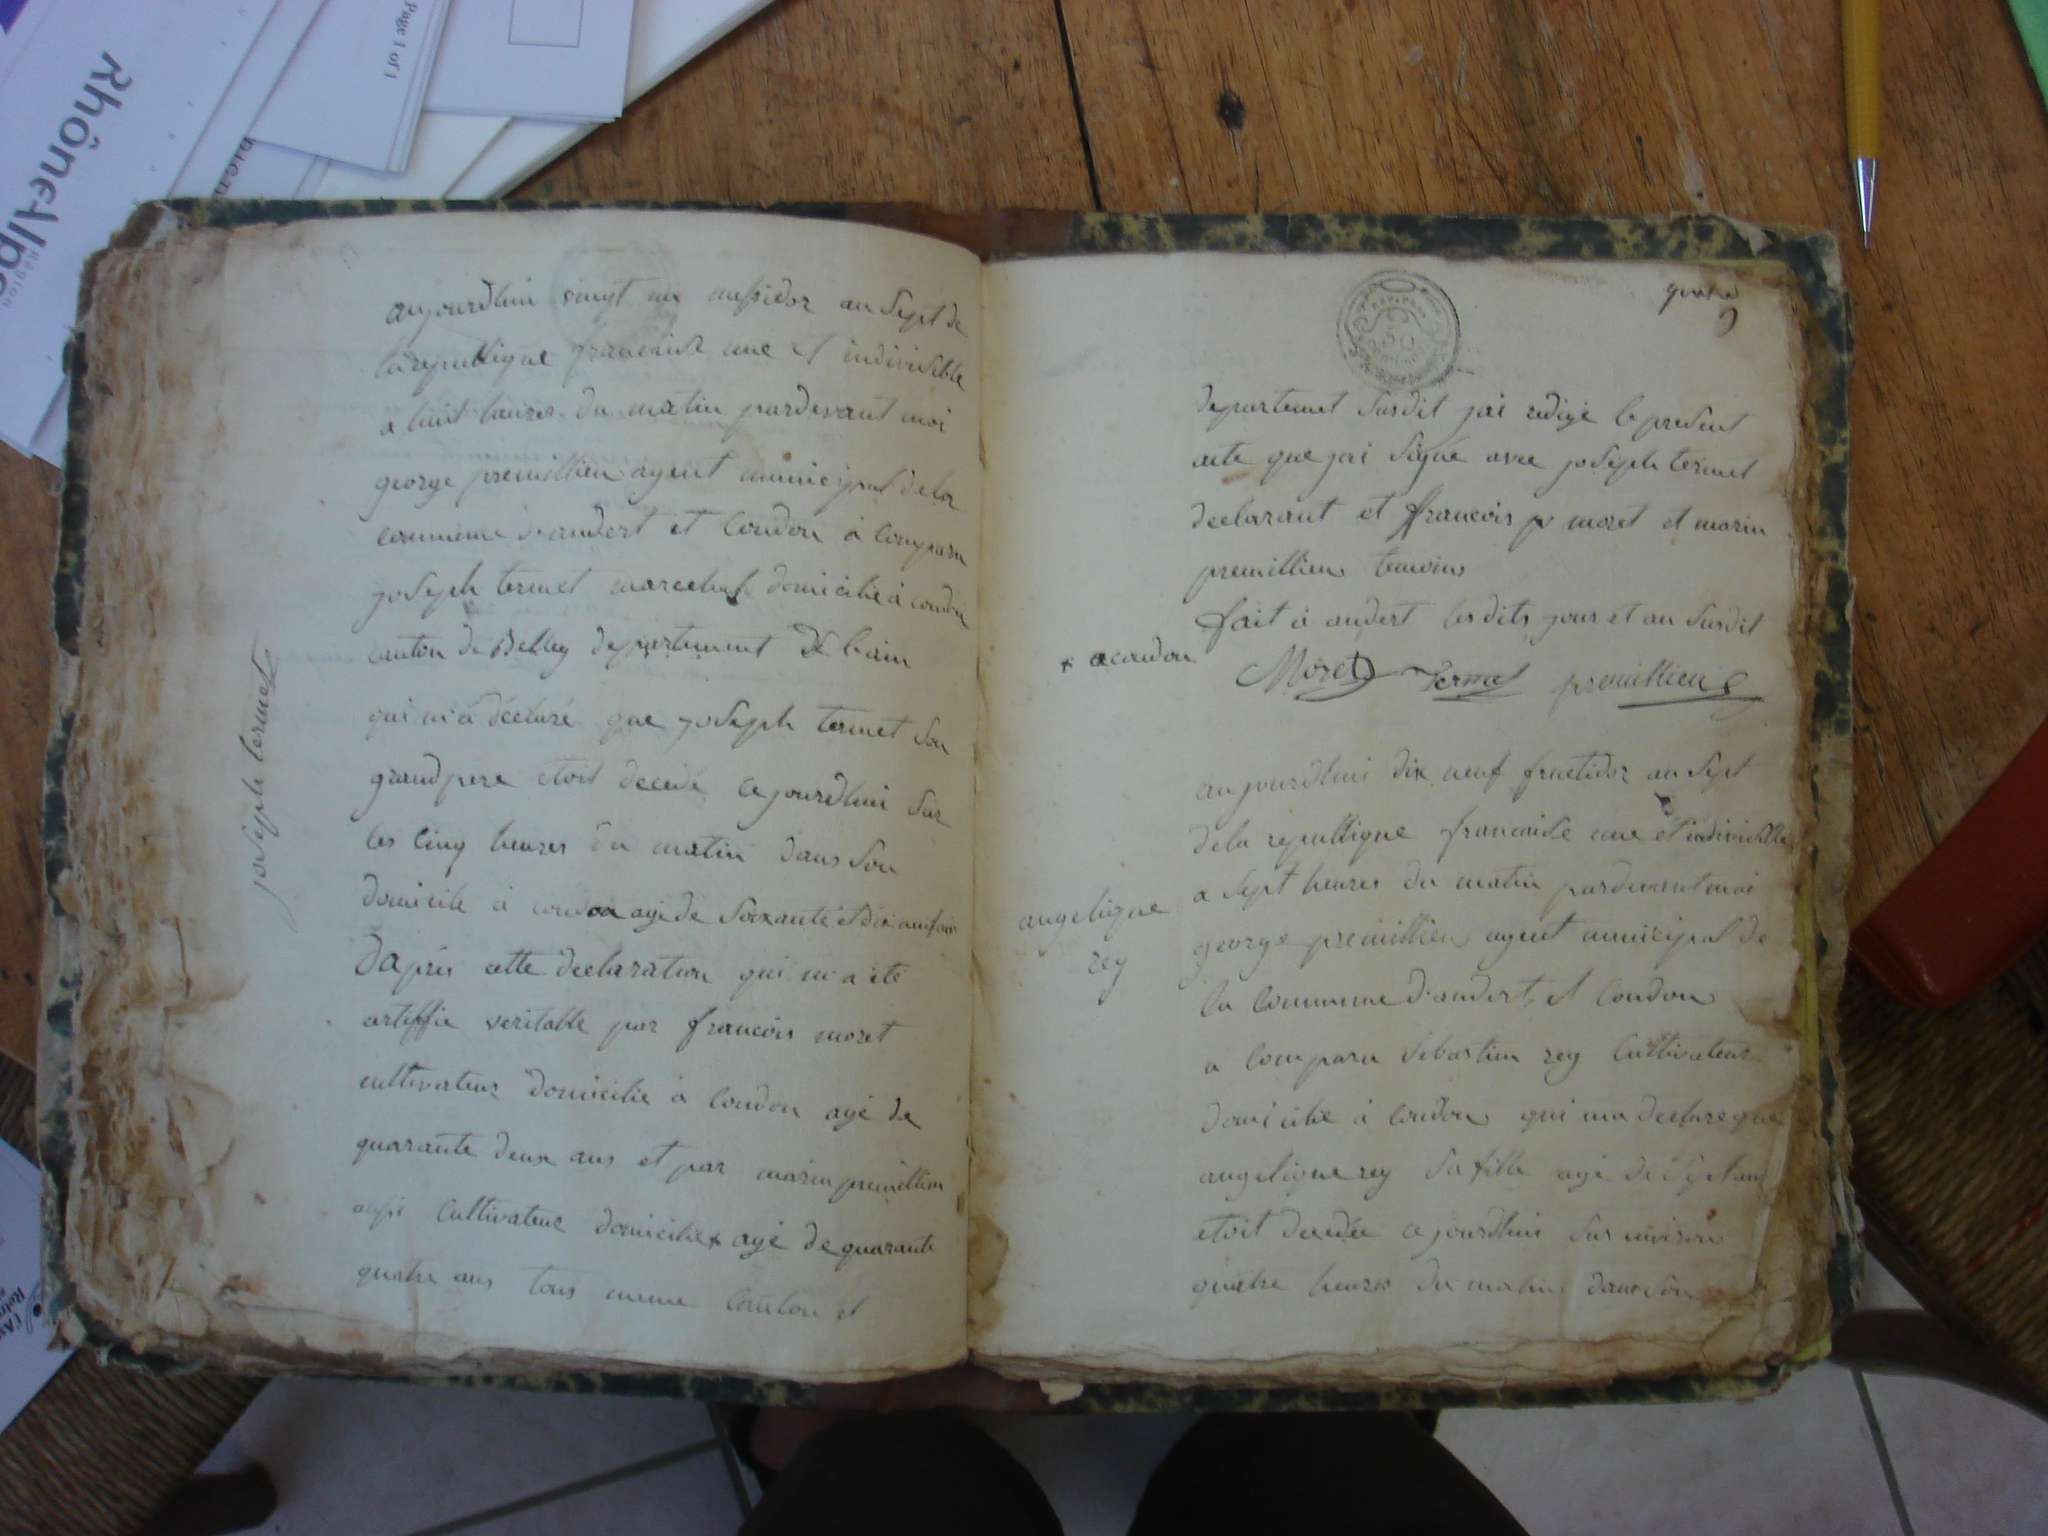 Rhône-Alpes
Région
Page 1 of 1
aujourdhui vingt un messidor an sept de
la republique francaise une et indivisible
a huit heures du matin pardevant moi
george premillieu agent municipal de la
commune d'andert et Condon à comparu
joseph termet marechal domicilié à condon
canton de Belley departement de l'ain
qui m'a déclaré que joseph termet son
grand pere etoit decedé cejourdhui sur
les cinq heures du matin dans son
domicile à condon agé de soixante et dix neuf ans
Dapres cette declaration qui m'a été
certiffie veritable par francois moret
cultivateur domicilié à Condon agé de
quarante deux ans et par marin premillieu
aussi cultivateur domicilié x agé de quarante
quatre ans tous meme canton et
joseph termet
quatre
50
departemet susdit j'ai redigé le present
acte que j'ai signé avec joseph termet
declarant et francois moret et marin
premillieu temoins
fait à andert les dits jour et an susdit
x a condon
Moret Termet premillieu
aujourdhui dix neuf fructidor an sept
de la republique francaise une et indivisible
a sept heures du matin pardevant moi
angelique
rey
george premillieu agent municipal de
la commune d'andert et Condon
a comparu sebastien rey cultivateur
domicilié à Condon qui m'a declaré que
angelique rey sa fille agé de sept ans
etoit decedée cejourdhui sur environ
quatre heures du matin dans son